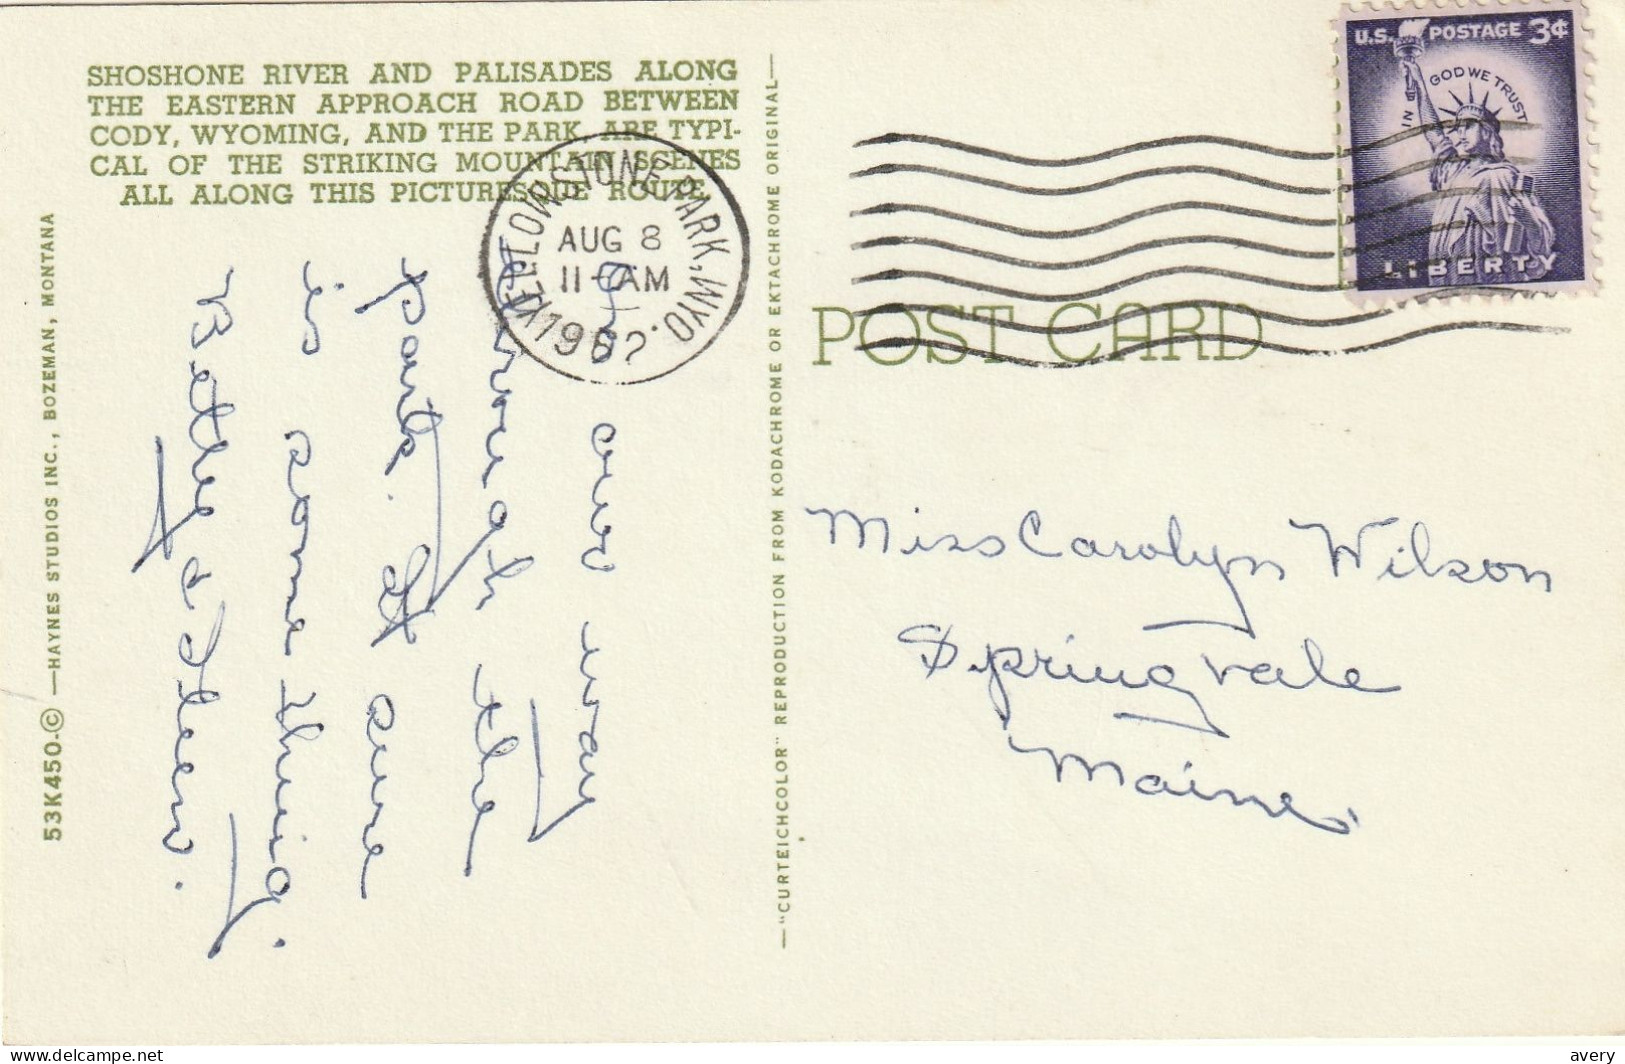 SHOSHONE RIVER AND PALISADES ALONG
THE EASTERN APPROACH ROAD BETWEEN
CODY, WYOMING, AND THE PARK, ARE TYPI-
CAL OF THE STRIKING MOUNTAIN SCENES
ALL ALONG THIS PICTURESQUE ROUTE.
53K450-© —HAYNES STUDIOS INC., BOZEMAN, MONTANA
On our way
through the
park. It sure
is something.
Betty & Steen.
—"CURTEICHCOLOR" REPRODUCTION FROM KODACHROME OR EKTACHROME ORIGINAL—
YELLOWSTONE PARK, WYO.
AUG 8
11-AM
U.S. POSTAGE 3¢
IN GOD WE TRUST
LIBERTY
POST CARD
Miss Carolyn Wilson
Springvale
Maine.
avery